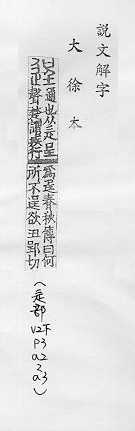 說文解字
大徐本
逞通也从辵呈
聲楚謂疾行
爲逞春秋傳曰何
所不逞欲丑郢切
(辵部
V2下
P3
a2
~
a3)